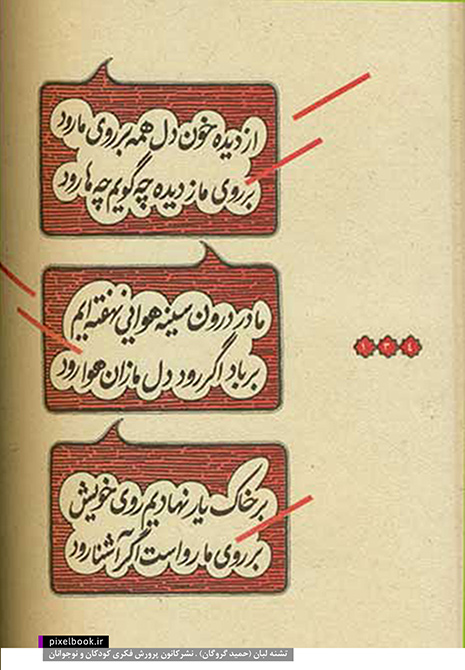 از دیده خون دل همه بر روی ما رود
بر روی ما ز دیده چه گویم چه ها رود
ما در درون سینه هوایی نهفته ایم
بر باد اگر رود دل ما زان هوا رود
۱۳۴
بر خاک یار نهادیم روی خویش
بر روی ما رواست اگر آشنا رود
pixelbook.ir
تشنه لبان (حمید گروگان) . نشر کانون پرورش فکری کودکان و نوجوانان